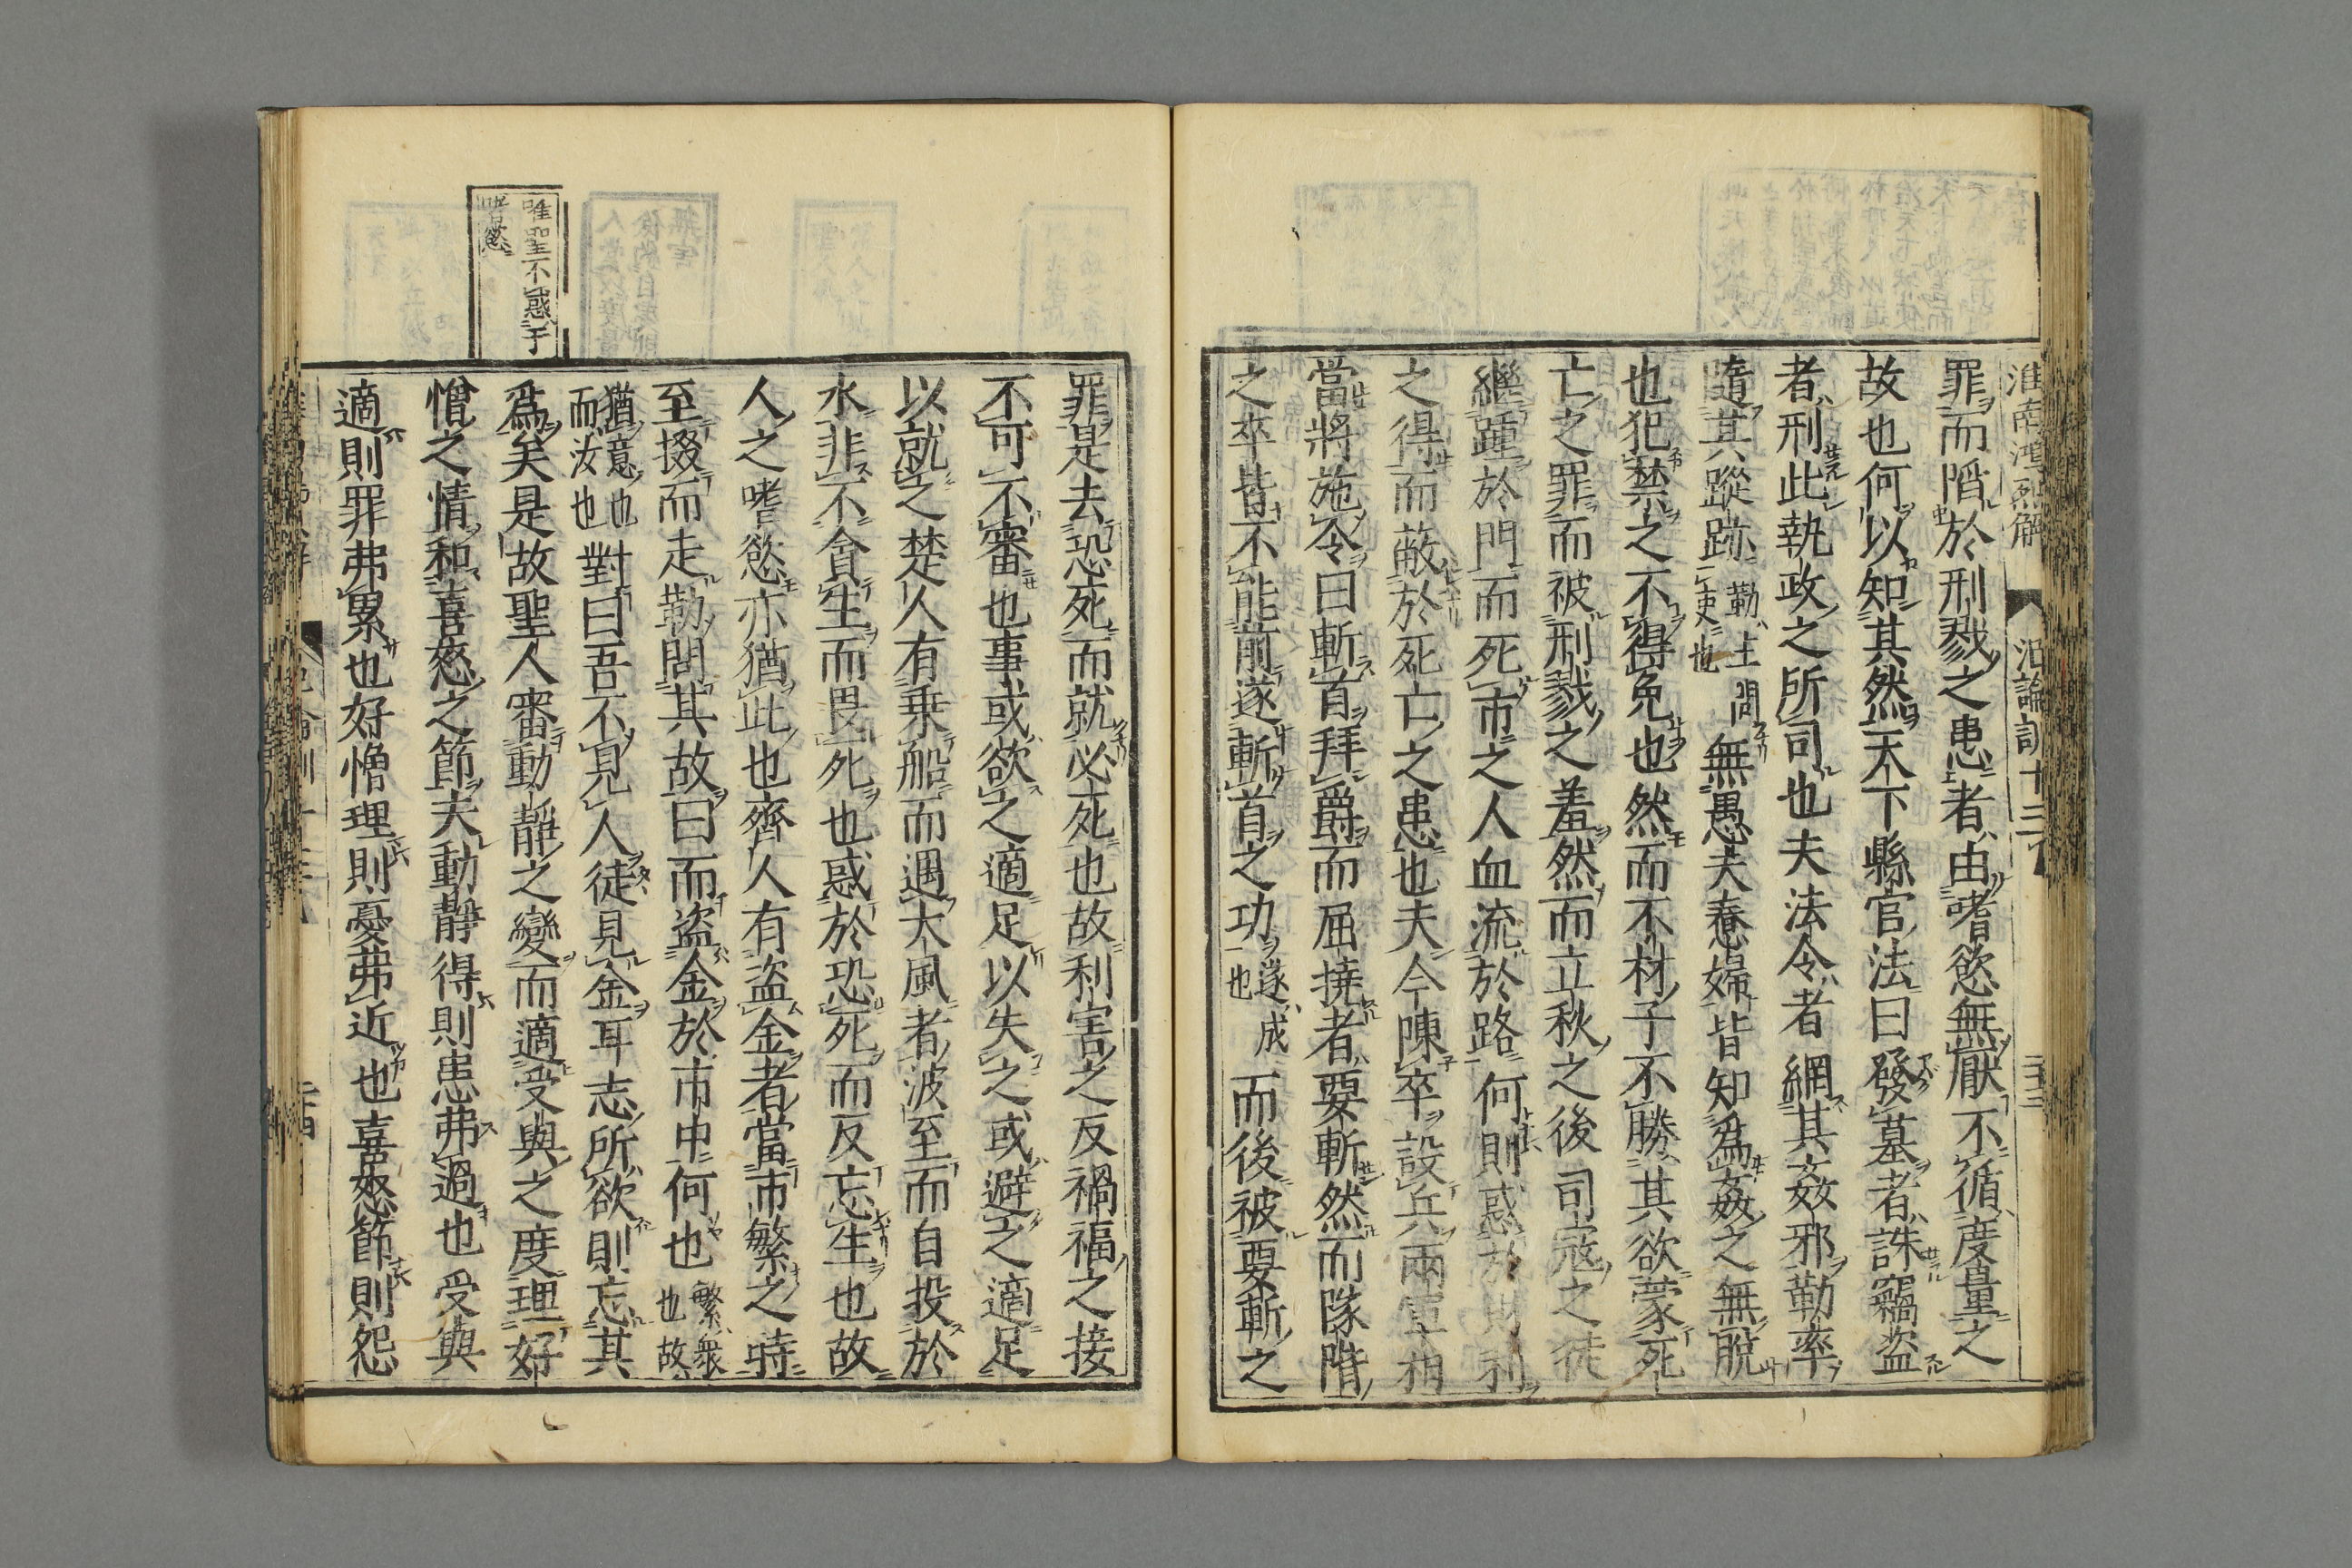 淮南鴻烈解
氾論訓十三
罪而䧟於刑戮之患者由嗜慾無厭不循度量之
故也何以知其然天下縣官法曰發墓者誅竊盜
者刑此執政之所司也夫法令者網其姦邪勒率
隨其蹤跡勒主問吏也無愚夫惷婦皆知爲姦之無脫
也犯禁之不得免也然而不材子不勝其欲蒙死
亡之罪而被刑戮之羞然而立秋之後司寇之徒
繼踵於門而死市之人血流於路何則惑於財利
之得而蔽於死亡之患也夫今陳卒設兵兩軍相
當將施令曰斬首拜爵而屈撓者要斬然而隊階
之卒皆不能前遂斬首之功遂成也而後被要斬之
罪是去恐死而就必死也故利害之反禍福之接
不可不審也事或欲之適足以失之或避之適足
以就之楚人有乗船而遇大風者波至而自投於
水非不貪生而畏死也惑於恐死而反忘生也故
人之嗜慾亦猶此也齊人有盜金者當市繁之時
至掇而走勒問其故曰而盜金於市中何也繁衆也故
猶意也而汝也對曰吾不見人徒見金耳志所欲則忘其
爲矣是故聖人審動靜之變而適受與之度理好
憎之情和喜怒之節夫動靜得則患弗過也受與
適則罪弗累也好憎理則憂弗近也喜怒節則怨
唯聖不惑于
嗜慾